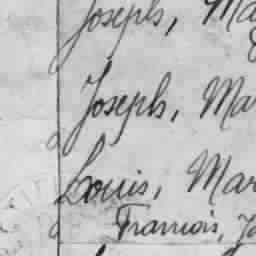 Joseph, Ma
Joseph, Mar
Louis, Mar
François, J